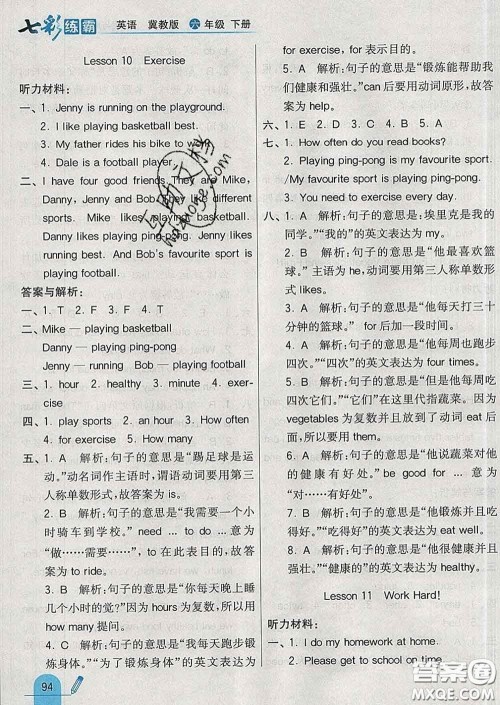 七彩练霸 英语 冀教版 六年级 下册
Lesson 10 Exercise
听力材料：
一、1. Jenny is running on the playground.
2. I like playing basketball best.
3. My father rides his bike to work.
4. Dale is a football player.
二、I have four good friends. They are Mike,
Danny, Jenny and Bob. They like different
sports. Mike likes playing basketball.
Danny likes playing ping-pong. Jenny
likes running. And Bob's favourite sport is
playing football.
答案与解析：
一、1. T 2. F 3. F 4. T
二、Mike — playing basketball
Danny — playing ping-pong
Jenny — running Bob — playing football
三、1. hour 2. healthy 3. minute 4. exer-
cise
四、1. play sports 2. an hour 3. How often
4. for exercise 5. How many
五、1. A 解析：句子的意思是“踢足球是运
动。”动名词作主语时，谓语动词要用第三
人称单数形式，故答案为 is。
2. B 解析：句子的意思是“我需要一个小
时骑车到学校。”need ... to do ...意为
“做……需要……”，to 在此表目的，故答
案为 to ride。
3. B 解析：句子的意思是“你每天晚上睡
几个小时觉？”因为 hours 为复数，所以用
how many 提问。
4. C 解析：句子的意思是“我每天跑步锻
炼身体。”“为了锻炼身体”的英文表达为
94
for exercise，for 表示目的。
5. A 解析：句子的意思是“锻炼能帮助我
们健康和强壮。”can 后接动词原形，故答
案为 help。
六、1. E 2. D 3. C 4. B 5. A
七、1. How often do you read books?
2. Playing ping-pong is my favourite sport.
/My favourite sport is playing ping-pong.
3. You need to exercise every day.
八、1. A 解析：句子的意思是：埃里克是我的
同学。”“我的”的英文表达为 my。
2. A 解析：句子的意思是“他最喜欢篮
球。”主语为 he，动词要用第三人称单数形
式 likes。
3. A 解析：句子的意思是“他每天打三十
分钟的篮球。”for 后加一段时间。
4. A 解析：句子的意思是“他每周跑步
四次。”“四次”的英文表达为 four times。
5. A 解析：句子的意思是“但是他每周吃
四次蔬菜。”“它们”在此代指蔬菜。因为
vegetables 为复数并且放到了动词 eat 后
面，所以要用宾格形式 them。
6. A 解析：句子的意思是“他说蔬菜对他
的健康有好处。”be good for ...意为
“对……有好处”。
7. A 解析：句子的意思是“他锻炼并且吃
得好。”“吃得好”的英文表达为 eat well。
8. A 解析：句子的意思是“他很健康并且
强壮。”“健康的”的英文表达为 healthy。
Lesson 11 Work Hard!
听力材料：
一、1. I do my homework at home.
2. Please get to school on time.
答案圈
MXQE.COM